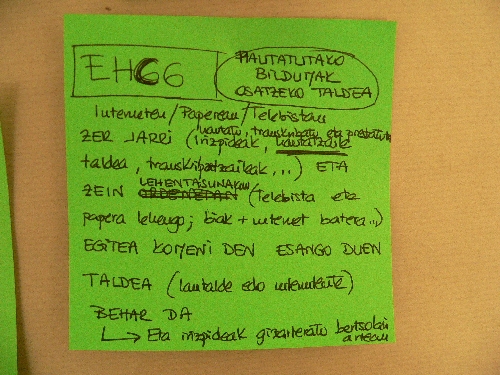 EHG6
HAUTATUTAKO
BILDUMAK
OSATZEKO TALDEA
Interneten/Paperean/Telebistan
hautatu, transkribatu eta prestatuta
ZER JARRI (irizpideak, hautatzaile
taldea, transkribatzaileak,...) ETA
LEHENTASUNAKIN
ZEIN (telebista eta
papera lehengo; biak + internet batera...)
EGITEA KOMENI DEN ESANGO DUEN
TALDEA (lantalde edo
BEHAR DA
Eta irizpideak gizarteratu bertsolari
artean